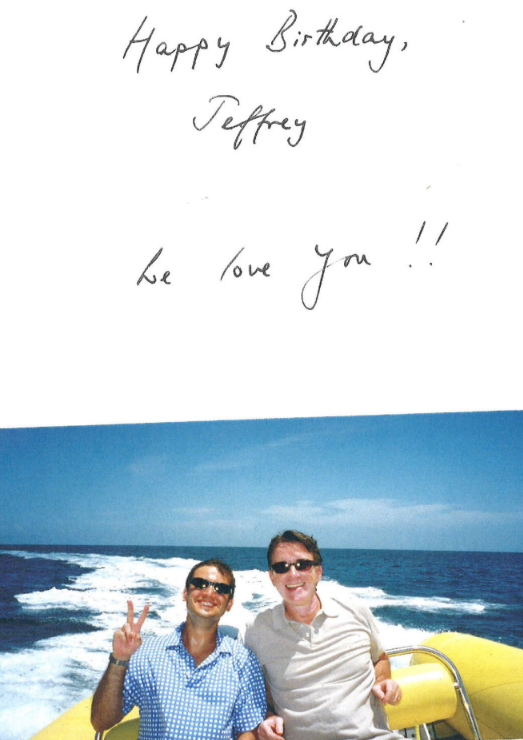 Happy Birthday,
Jeffrey
We love You !!